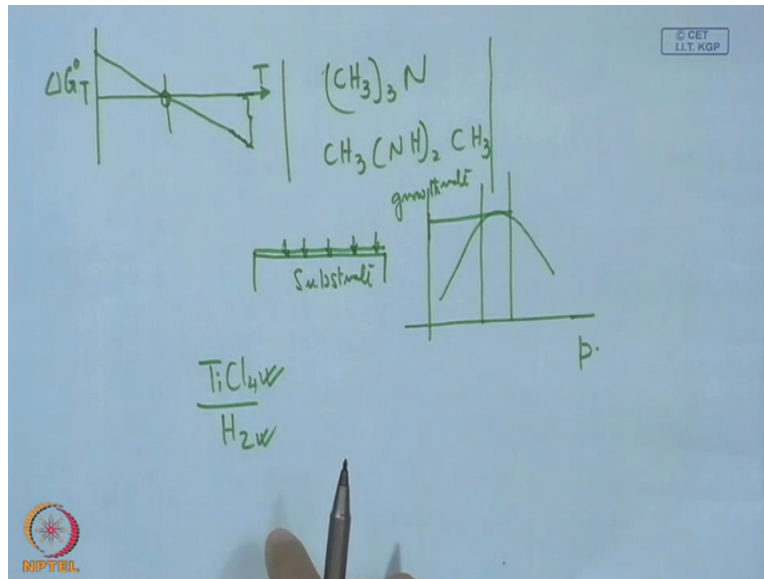 © CET
I.I.T. KGP
ΔG°T
T
(CH3)3 N
CH3(NH)2 CH3
growth rate
Substrate
p.
TiCl4
H2
NPTEL